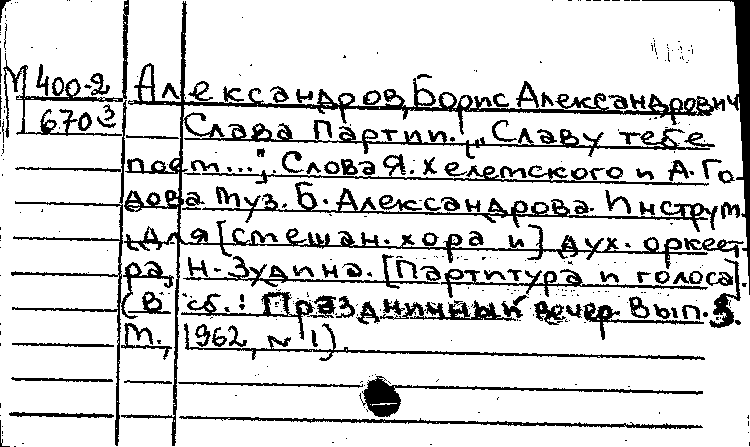 М 400-2
670 3
Александров, Борис Александрович
Слава Партии! „Славу тебе
поем...". Слова Я. Хелемского и А. Го-
дова. Муз. Б. Александрова. Инструм.
для [смешан. хора и] дух. оркест-
ра, Н. Зудина. [Партитура и голоса].
(В сб.: Праздничный вечер. Вып. 3.
М., 1962, № 1).